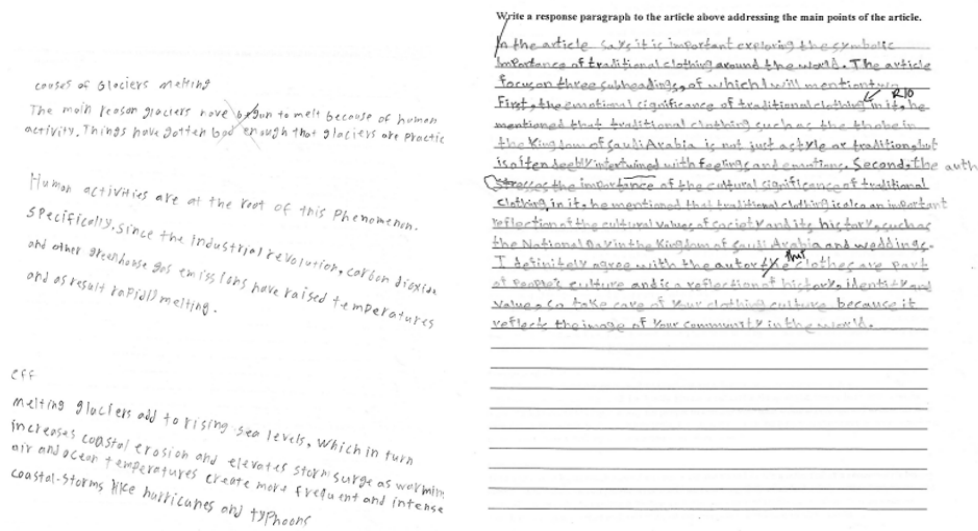 causes of Glaciers melting
The main reason glaciers have begun to melt because of human
activity. Things have gotten bad enough that glaciers are practic
Human activities are at the root of this Phenomenon.
Specifically, since the industrial revolution, carbon dioxide
and other greenhouse gas emissions have raised temperatures
and as result rapidly melting.
eff
melting glaciers add to rising sea levels, which in turn
increases coastal erosion and elevates storm surge as warming
air and ocean temperatures create more frequent and intense
coastal-storms like hurricanes and typhoons
Write a response paragraph to the article above addressing the main points of the article.
In the article says it is important exploring the symbolic
importance of traditional clothing around the world. The article
focus on three subheadings, of which I will mention two
R10
First, the emotional significance of traditional clothing in it, he
mentioned that traditional clothing such as the thobe in
the Kingdom of Saudi Arabia is not just a style or tradition, but
is often deebly intertwined with feelings and emotions. Second, the auth
stresses the importance of the cultural significance of traditional
clothing, in it, he mentioned that traditional clothing is also an important
reflection of the cultural values of society and its history, such as
the National Day in the Kingdom of Saudi Arabia and weddings.
I definitely agree with the autor that clothes are part
of people's culture and is a reflection of history, identity and
value, so take care of your clothing culture because it
reflects the image of your community in the world.